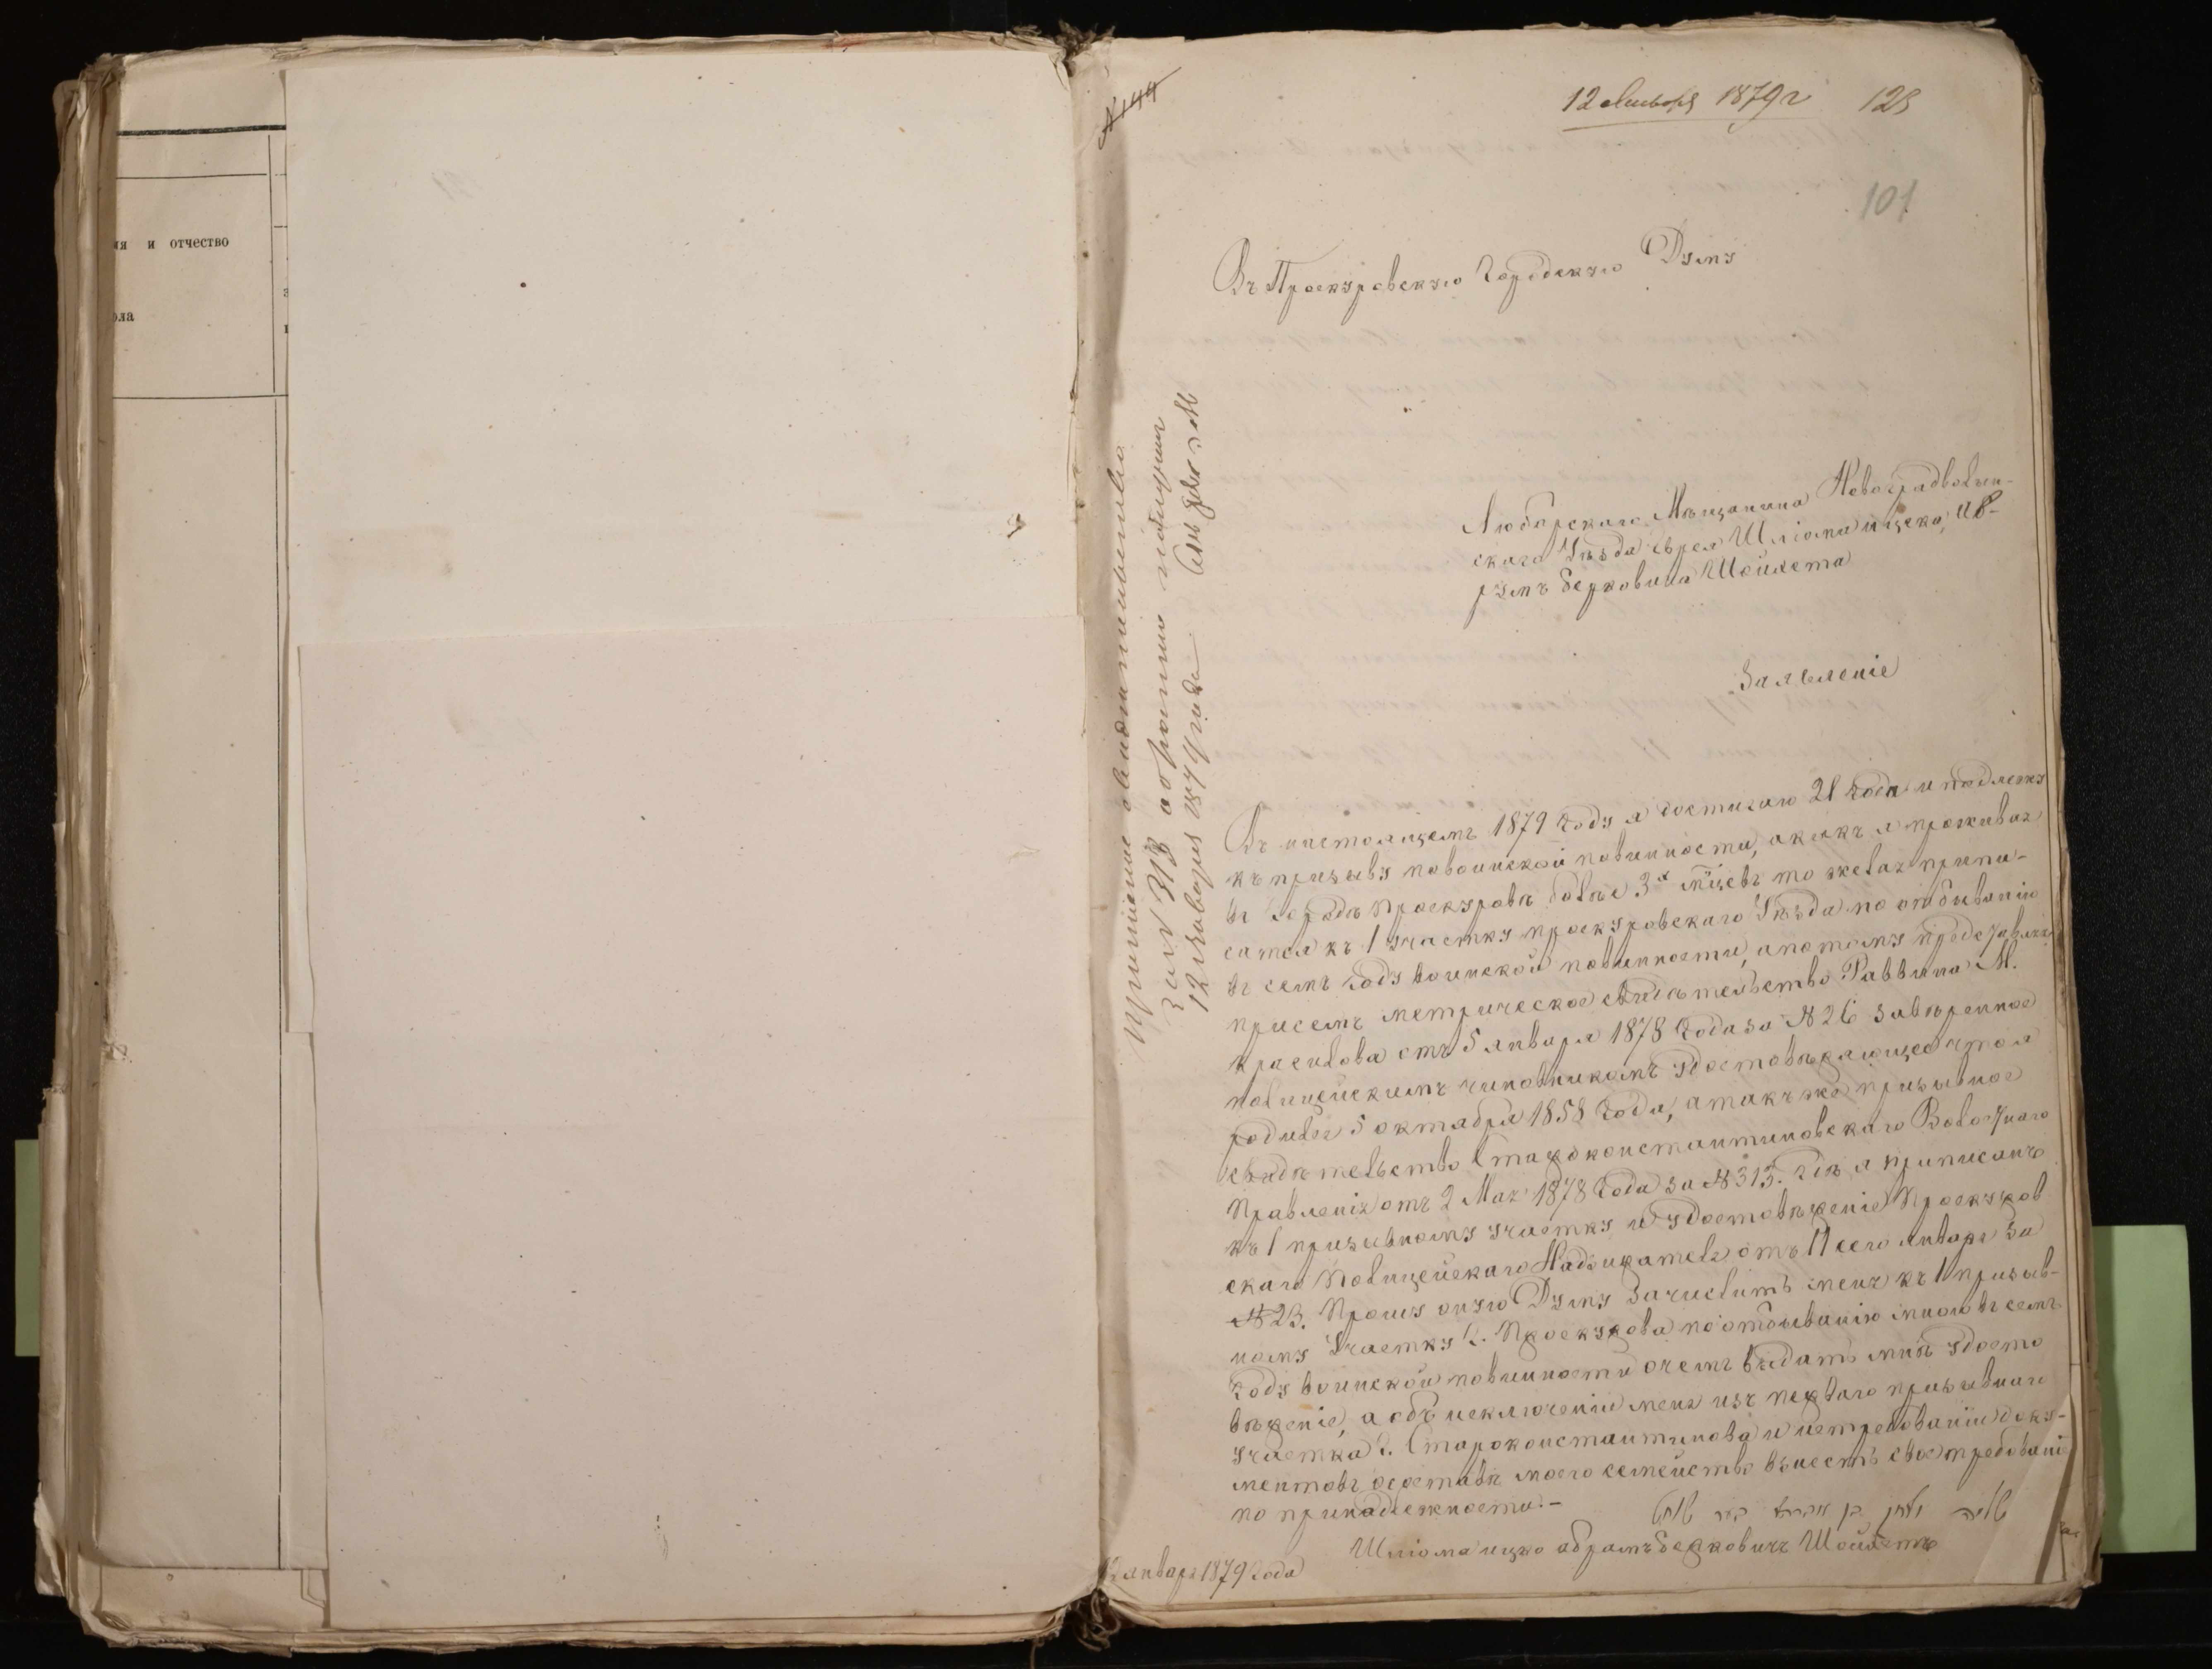 и отчество
№ 144
12 Января 1879 г 128
101
Въ Проскуровскую Городскую Думу
Любарскаго Мѣщанина Новоградволын-
скаго Уѣзда еврея Шліома ицско, Аб-
рамъ Берковича Шойхета
Заявленіе
Въ настоящемъ 1879 году я достигаю 21 года и подлежу
къ призыву повоинской повинности, а какъ я проживаю
въ городѣ Проскуровѣ болѣе 3х мѣсцевъ то желаю припи-
сатся къ 1 участку проскуровскаго Уѣзда по отбыванію
въ семъ году воинской повинности, апотому представляя
присемъ метрическое свидѣтельство Раввина М.
Красилова отъ 5 января 1878 года за № 26 завѣренное
полицейскимъ чиновникомъ удостовѣряющее что я
родился 5 октября 1858 года, а такъ же призывное
свидѣтельство Староконстантиновскаго Волостнаго
Правленія отъ 2 Мая 1878 года за № 313. гдѣ я приписанъ
къ 1 призывному участку и удостовѣреніе Проскуров
скаго Полицейскаго Надзирателя отъ 11 сего января за
№ 23. Прошу оную Думу Зачислить меня къ 1 призыв-
ному Участку Г. Проскурова по отбыванію мною въ семъ
году воинской повинности очемъ выдать мнѣ удосто
вѣреніе, а объ исключеніи меня изъ перваго призывнаго
участка Г. Староконстантинова и истребованіи доку-
ментовъ осоставѣ моего семейства внесть свое требованіе
по принадлежности.-
Шліома ицко абрамъ берковичъ Шойхетъ
12 января 1879 года
призывное свидѣтельство
за № 313 обратно получилъ
12 Января 1879 года